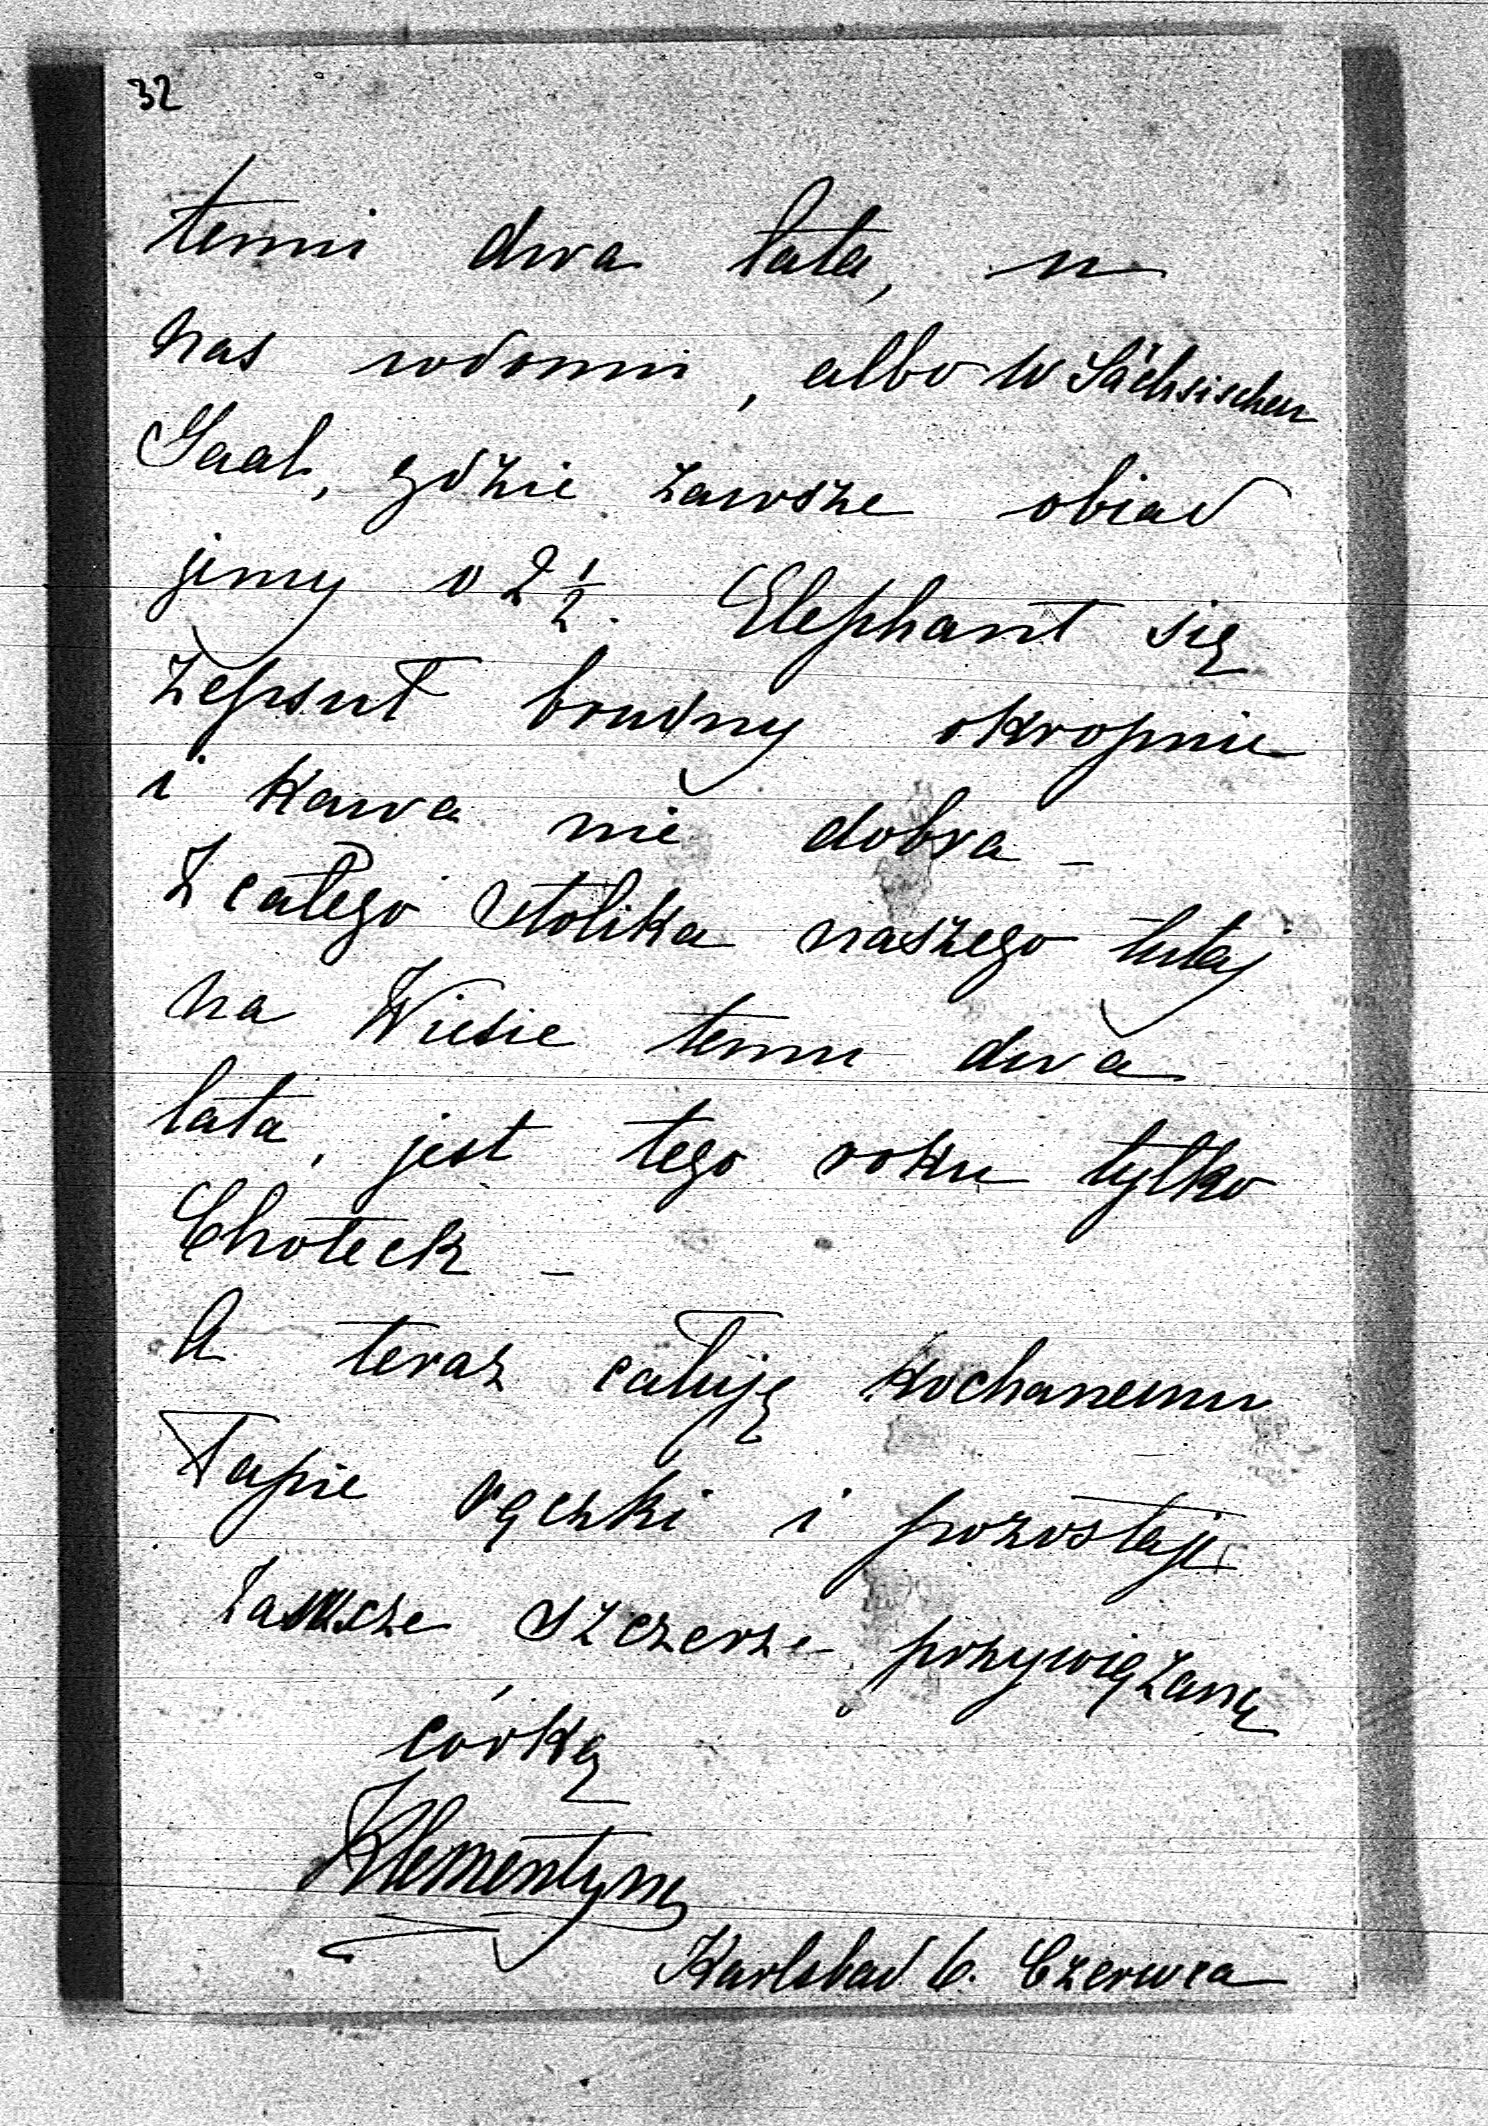 32
temu dwa lata, u
nas w domu, albo w Sächsischen
Saal, gdzie zawsze obiad
jemy o 2 1/2. Elephant się
zepsuł brudny okropnie
i kawa nie dobra –
Z całego stolika naszego tutaj
na Wiesie temu dwa
lata, jest tego roku tylko
Choteck –
A teraz całuję kochanemu
Papie rączki i pozostaję
zawsze szczerze przywiązaną
córką
Klementyną
Karlsbad 6. Czerwca